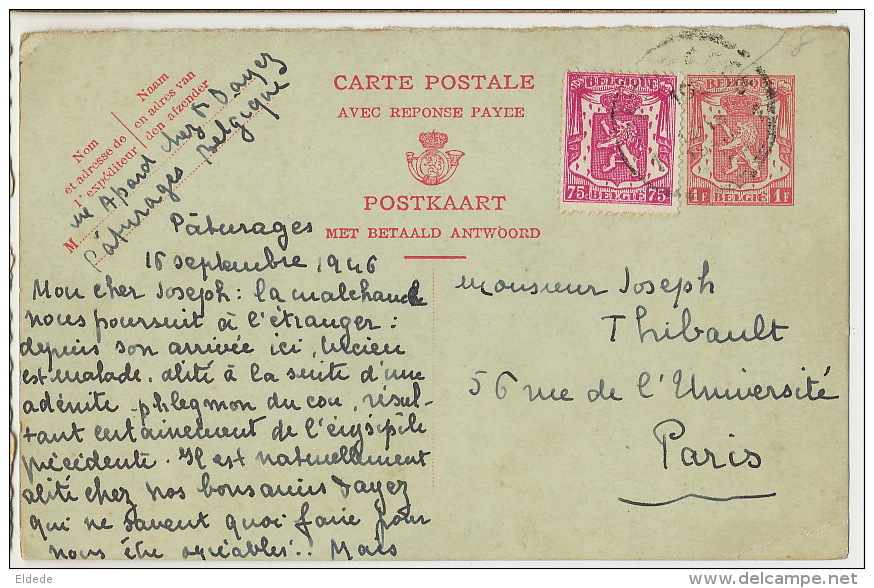 CARTE POSTALE
AVEC REPONSE PAYEE
POSTKAART
MET BETAALD ANTWOORD
Nom
et adresse de
l'expéditeur
Naam
en adres van
den afzender
M
Apard chez Dayez
Pâturages Belgique
BELGIQUE
75 BELGIE 75
BELGIQUE
1F BELGIE 1F
Pâturages
16 septembre 1946
Mon cher Joseph : la malchance
nous poursuit à l'étranger :
depuis son arrivée ici, Lucien
est malade, alité à la suite d'une
adénite-phlegmon du cou, résul-
tant certainement de l'érysipèle
précédente. Il est naturellement
alité chez nos bons amis Dayez
qui ne savent quoi faire pour
nous être agréables.. Mais
Monsieur Joseph
Thibault
56 rue de l'Université
Paris
Eldede
delcampe.net